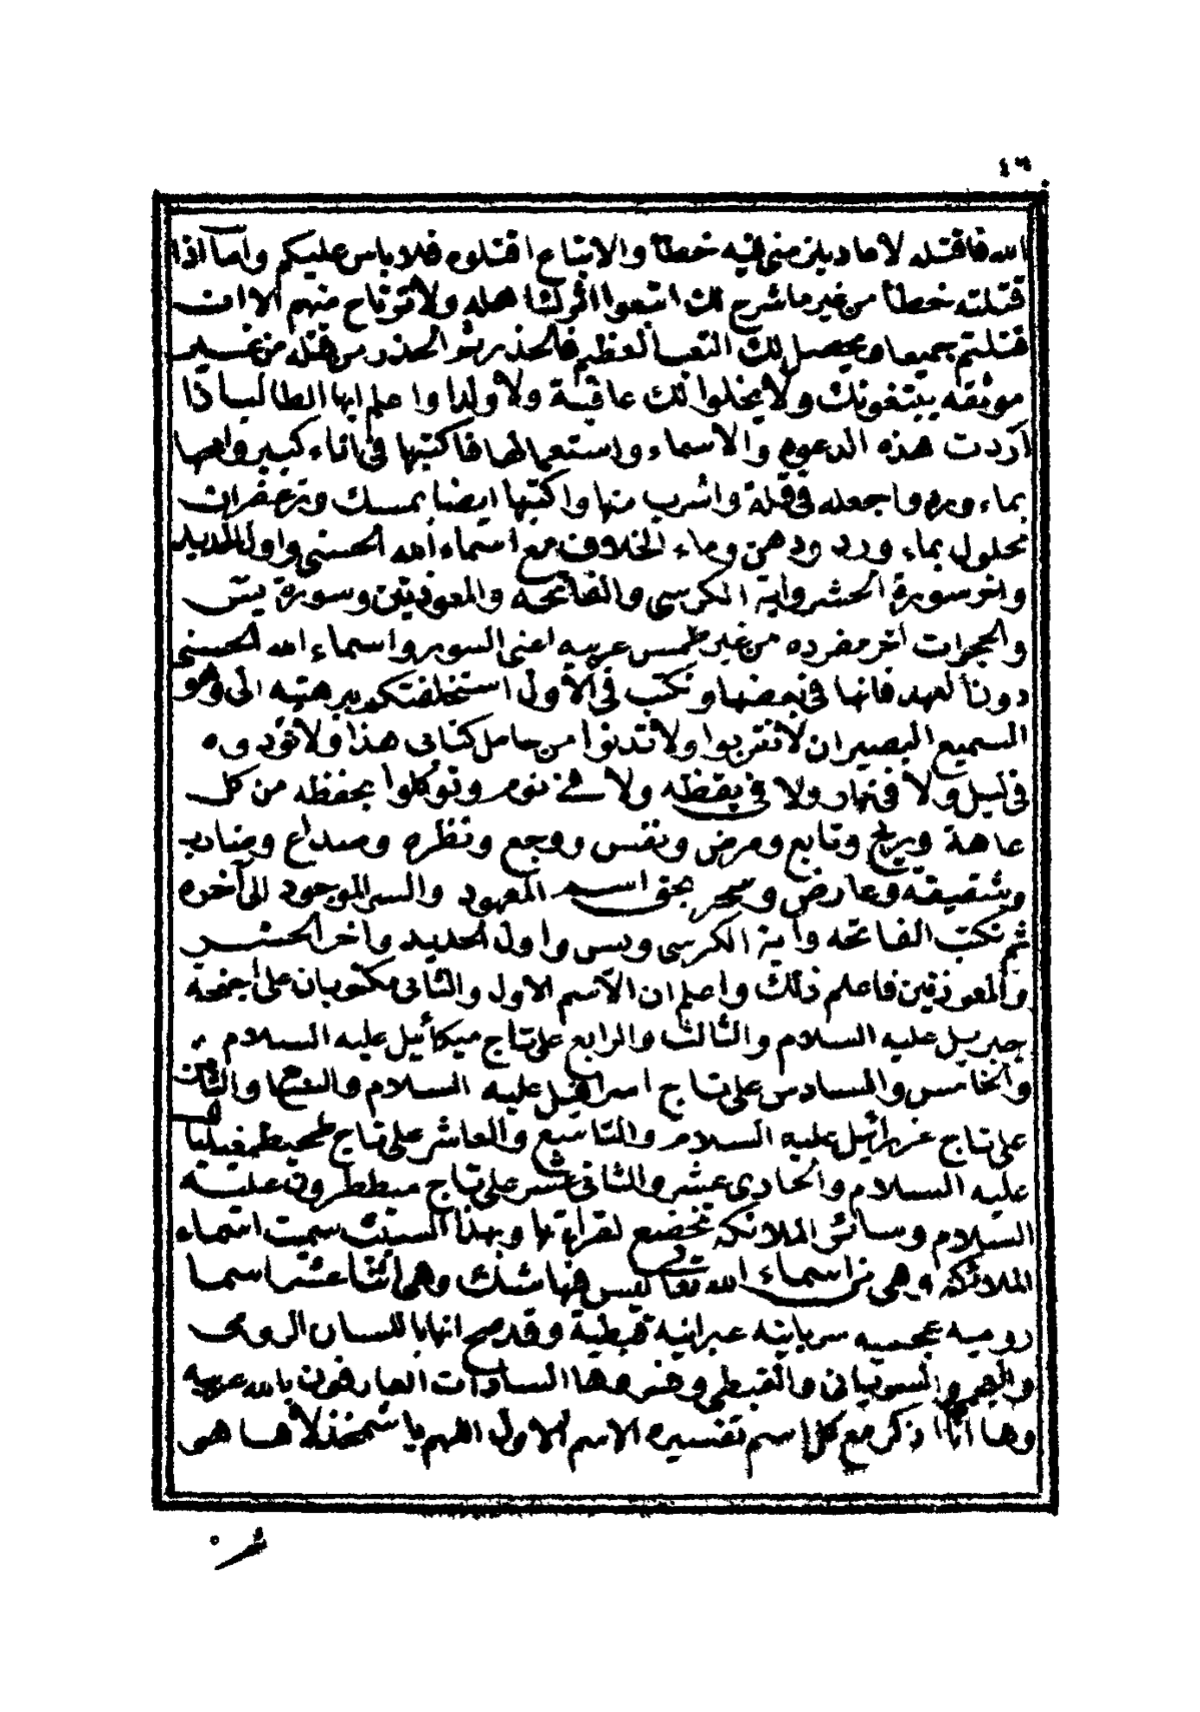 ٤٦
الله فاقتله لاما دين مني فيه خطأ والاتباع اقتلوه فلا باس عليكم واما اذا
قتلته خطأ من غير ما شرح لك اتبعوا اثرك اهله ولا ترتاح منهم الا ان
قتلتم جميعا ويحصل لك التعب العظيم فالحذر ثم الحذر من قتله من غير
موثقه يبتغونك ولا يخلوا لك عاقبة ولا ولدا واعلم ايها الطالب اذا
اردت هذه الدعوه والاسماء واستعمالها فاكتبها في اناء كبير وامحها
بماء ورد واجعله في قلة واشرب منها واكتبها ايضا بمسك وزعفران
محلول بماء ورد ودهن وماء الخلاف مع اسماء الله الحسنى واول الحديد
واخر سورة الحشر واية الكرسي والفاتحه والمعوذتين وسورة يس
والحجرات اخر مفرده من غير طمس عربيه اعني السور واسماء الله الحسنى
دون العهد فانها في بعضها وتكتب في الأول استخلفتكم ببرهتيه الى وهو
السميع البصير ان لا تقربوا ولا تدنوا من حامل كتابى هذا ولا تؤذوه
في ليل ولا في نهار ولا في يقظه ولا في نوم وتوكلوا بحفظه من كل
عاهة وريح وتابع ومرض ونفس ووجع ونظره وصداع وضارب
وشقيقه وعارض وسحر بحق اسم المعهود والسر الموجود الى آخره
ثم تكتب الفاتحه واية الكرسى ويس واول الحديد واخر الحشر
والمعوذتين فاعلم ذلك واعلم ان الاسم الاول والثانى مكتوبان على اجنحة
جبريل عليه السلام والثالث والرابع على تاج ميكائيل عليه السلام
والخامس والسادس على تاج اسرافيل عليه السلام والسابع والثامن
على تاج عزرائيل عليه السلام والتاسع والعاشر على تاج
عليه السلام والحادى عشر والثانى عشر على تاج ميططرون عليه
السلام وسائر الملائكه تخضع لقراءتها وبهذا السبب سميت اسماء
الملائكه وهى من اسماء الله تعالى ليس فيها شك وهى اثنا عشر اسما
روميه عجميه سريانيه عبرانيه قبطية وقد صح انها باللسان الرومى
والعجمى والسريانى والقبطى وفسروها السادات العارفون بالله عربيه
وها انا اذكر مع كل اسم تفسيره الاسم الاول اللهم يا